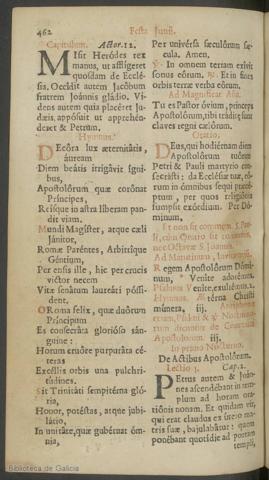 462
Festa Junij.
Capitulum. Actor. 12.
Misit Heródes rex
manus, ut affligeret
quosdam de Ecclé-
sia, Occídit autem Jacóbum
fratrem Joánnis gládio. Vi-
dens autem quia placéret Ju-
dæis, appósuit ut apprehén-
deret & Petrum.
Hymnus.
Decóra lux æternitátis,
áuream
Diem beátis irrigávit igni-
bus,
Apostolórum quæ corónat
Príncipes,
Reísque in astra líberam pan-
dit viam.
Mundi Magíster, atque cæli
Jánitor,
Romæ Paréntes, Arbitríque
Géntium,
Per ensis ille, hic per crucis
victor necem
Vitæ senátum laureáti póssi-
dent.
O Roma felix, quæ duórum
Príncipum
Es consecráta glorióso sán-
guine:
Horum cruóre purpuráta cé-
teras
Excéllis orbis una pulchri-
túdines.
Sit Trinitáti sempitérna gló-
ria,
Honor, potéstas, atque jubi-
látio,
In unitáte, quæ gubérnat óm-
nia,
Per univérsa sæculórum sæ-
cula. Amen.
℣. In omnem terram exívit
sonus eórum. ℟. Et in fines
orbis terræ verba eórum.
Ad Magnificat Aña.
Tu es Pastor óvium, princeps
Apostolórum, tibi tráditæ sunt
claves regni cælórum.
Oratio.
Deus, qui hodiérnam diem
Apostolórum tuórum
Petri & Pauli martyrio con-
secrásti: da Ecclésiæ tuæ, eó-
rum in ómnibus sequi præcé-
ptum, per quos religiónis
sumpsit exórdium. Per Dó-
minum,
Et non fit commem. S. Pau-
li, cùm Oratio sit communis,
nec Octavæ S. Joannis.
Ad Matutinum, Invitatoriũ.
Regem Apostolórum Dómi-
num, * Veníte adorémus.
Psalmus Veníte, exultémus.
Hymnus. Ætérna Christi
múnera, iij.
Apostolorum. iij.
In primo Nocturno.
De Actibus Apostolórum.
Lectio j. Cap. 3.
Petrus autem & Joán-
nes ascendébant in tem-
plum ad horam ora-
tiónis nonam. Et quidam vir,
qui erat claudus ex útero ma-
tris suæ, bajulabátur: quem
ponébant quotídie ad portam
templi,
Biblioteca de Galicia